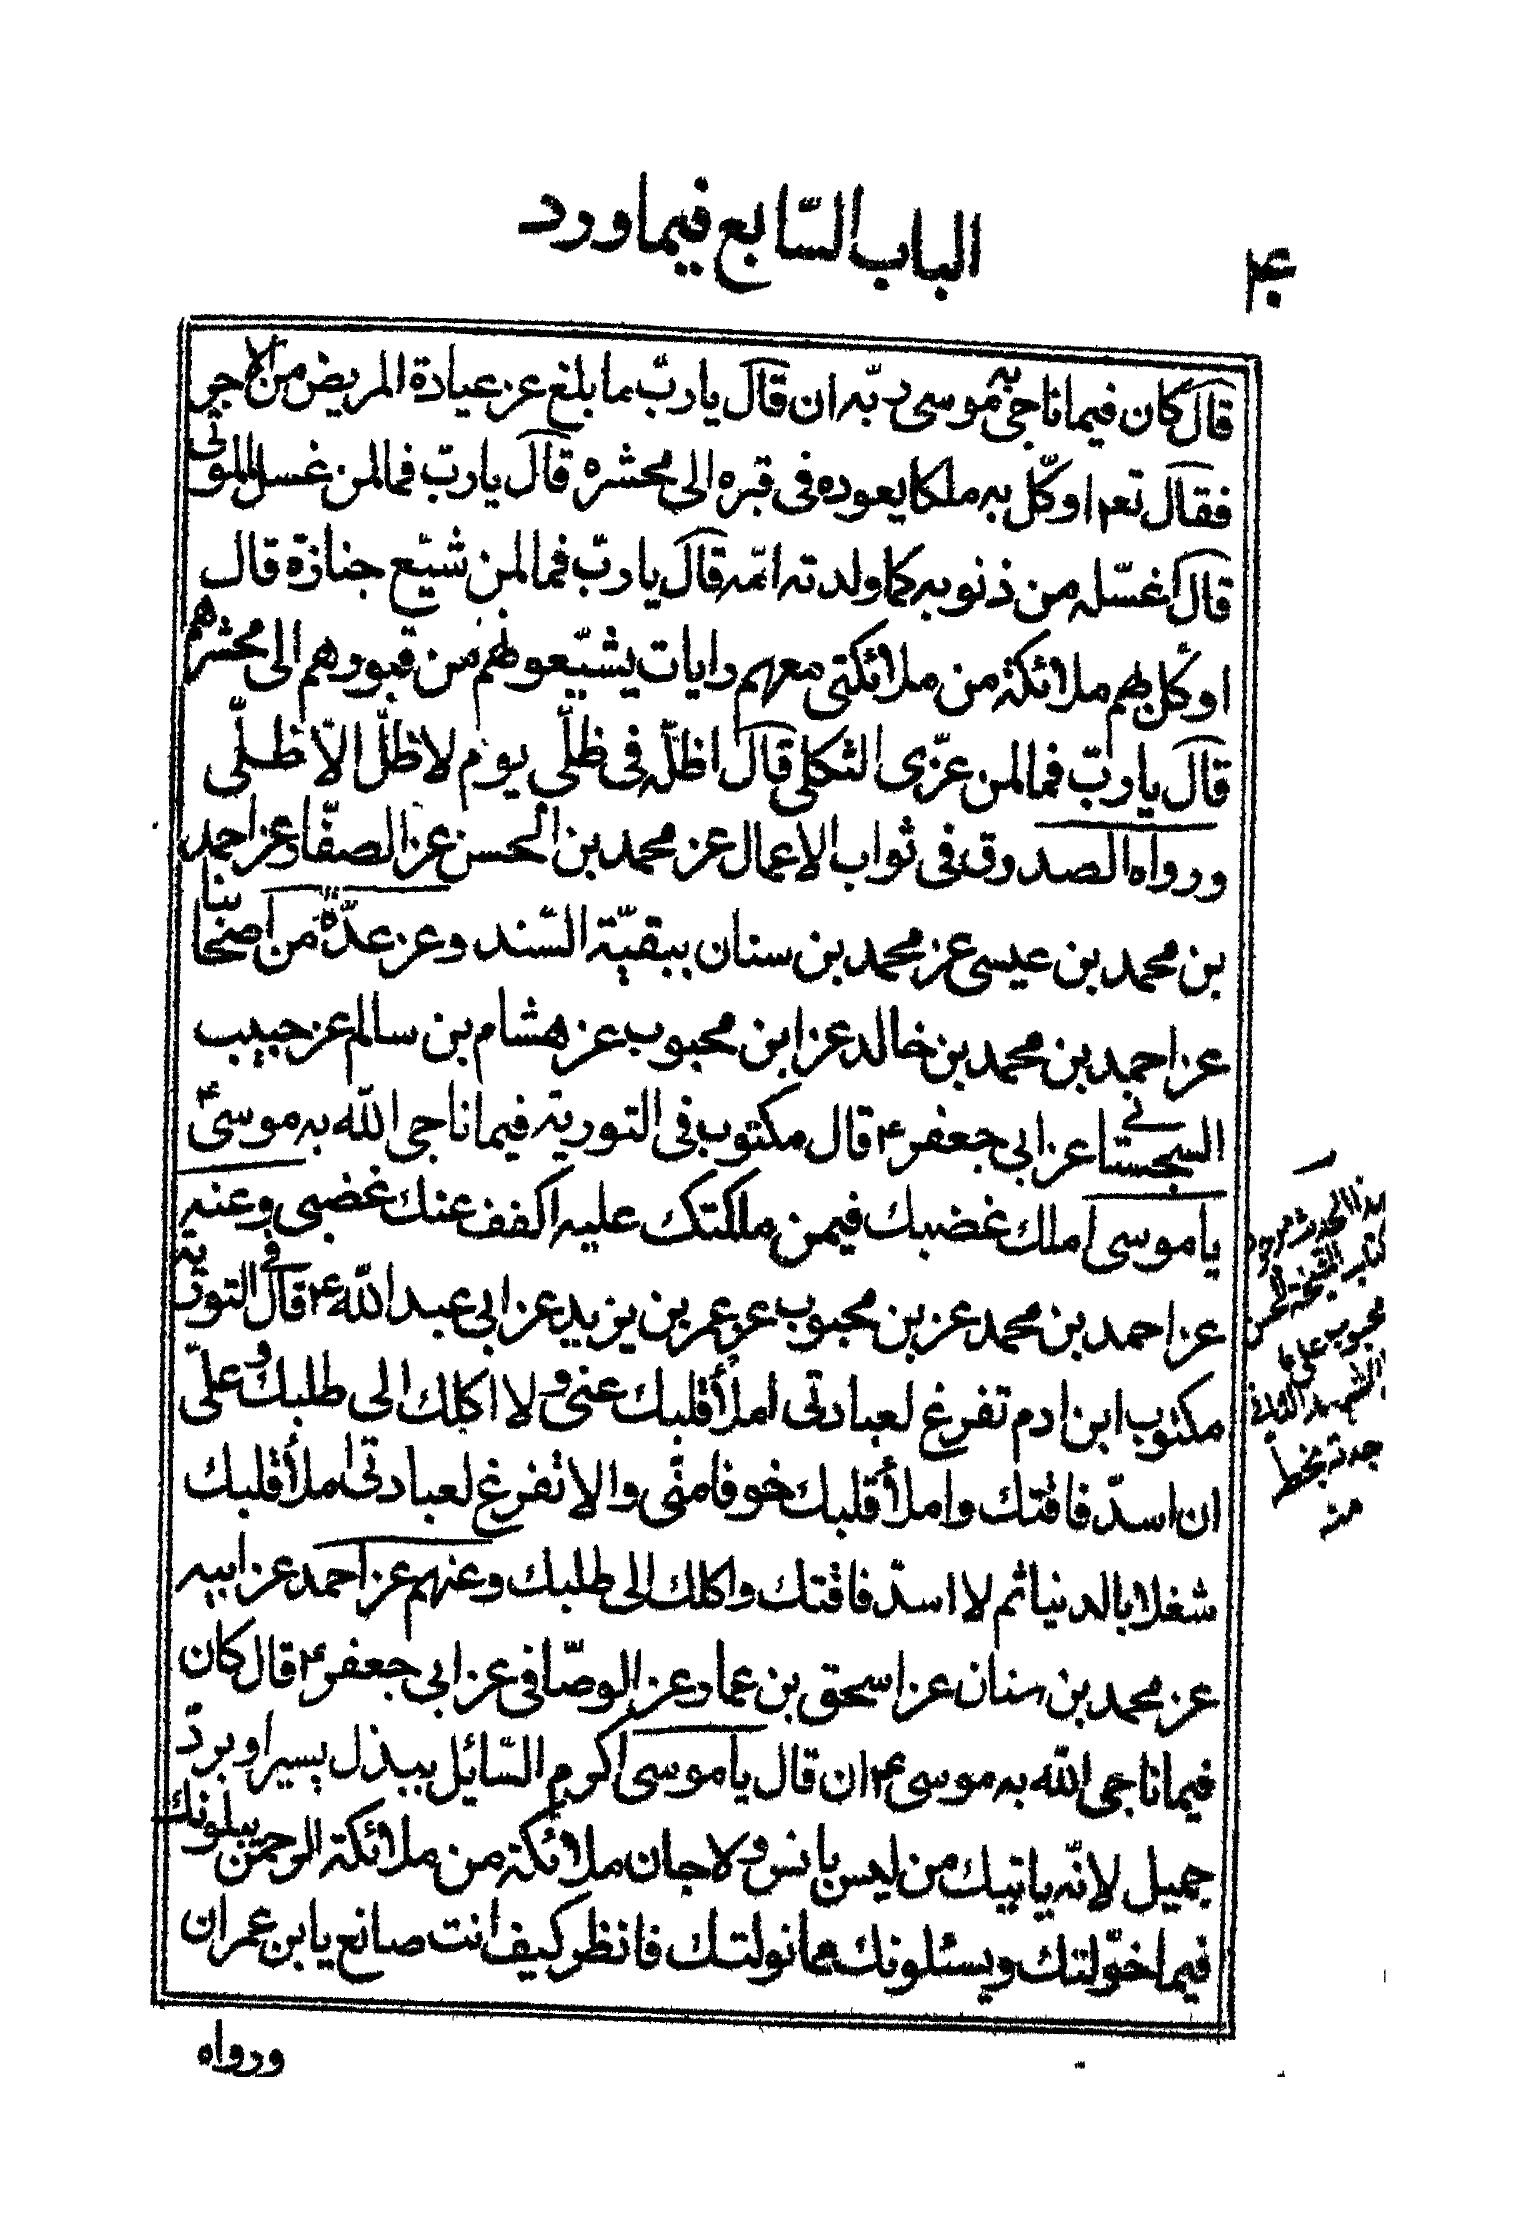 الباب السّابع فيما ورد
۴۰
قال كان فيما ناجى به موسى ربّه ان قال يا ربّ ما بلغ عن عيادة المريض من الاجر
فقال تع اوكّل به ملكا يعوده فى قبره الى محشره قال يا ربّ فما لمن غسل الموتى
قال اغسّله من ذنوبه كما ولدته امّه قال يا ربّ فما لمن شيّع جنازة قال
اوكّل بهم ملائكة من ملائكتى معهم رايات يشيّعونهم من قبورهم الى محشرهم
قال يا ربّ فما لمن عزّى الثكلى قال اظلّه فى ظلّى يوم لا ظلّ الاّ ظلّى
ورواه الصدوق فى ثواب الاعمال عن محمد بن الحسن عن الصفّار عن احمد
بن محمد بن عيسى عن محمد بن سنان ببقيّة السّند وعن عدّة من اصحابنا
عن احمد بن محمد بن خالد عن ابن محبوب عن هشام بن سالم عن حبيب
السجستانى عن ابى جعفر ۴ قال مكتوب فى التورية فيما ناجى اللّه به موسى ۴
يا موسى املك غضبك فيمن ملكتك عليه اكفف عنك غضبى وعنه
عن احمد بن محمد عن بن محبوب عن عمر بن يزيد عن ابى عبد اللّه ۴ قال فى التورية
مكتوب ابن ادم تفرغ لعبادتى املأ قلبك غنى ولا اكلك الى طلبك وعلىّ
ان اسدّ فاقتك واملأ قلبك خوفا منّى والا تفرغ لعبادتى املأ قلبك
شغلا بالدنيا ثم لا اسدّ فاقتك واكلك الى طلبك وعنهم عن احمد عن ابيه
عن محمد بن سنان عن اسحق بن عمار عن الوصّافى عن ابى جعفر ۴ قال كان
فيما ناجى اللّه به موسى ۴ ان قال يا موسى اكرم السّائل ببذل يسير او بردّ
جميل لانّه ياتيك من ليس بانس ولا جان ملائكة من ملائكة الرحمن يبلونك
فيما خوّلتك ويسئلونك مما نولتك فانظر كيف انت صانع يا بن عمران
ورواه
الحديث موجود
كتاب الشيخة
محبوب على ما
الشهيد الثانى
بخط